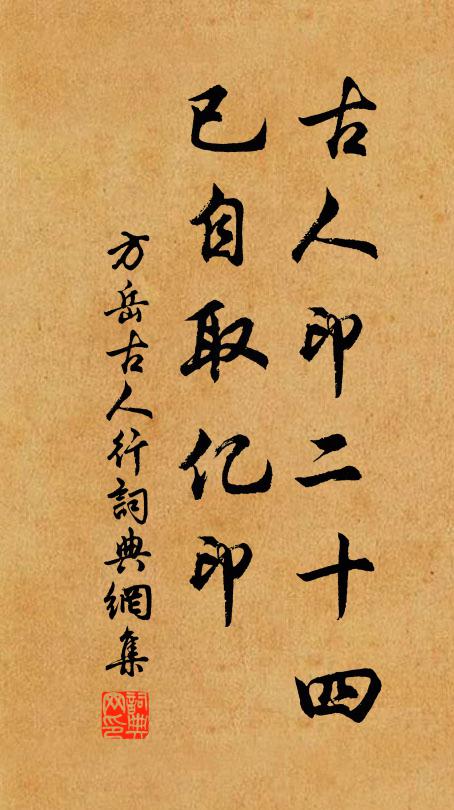 古人印二十四
已自取亿印
方岳古人行詞典網集
詞典网印